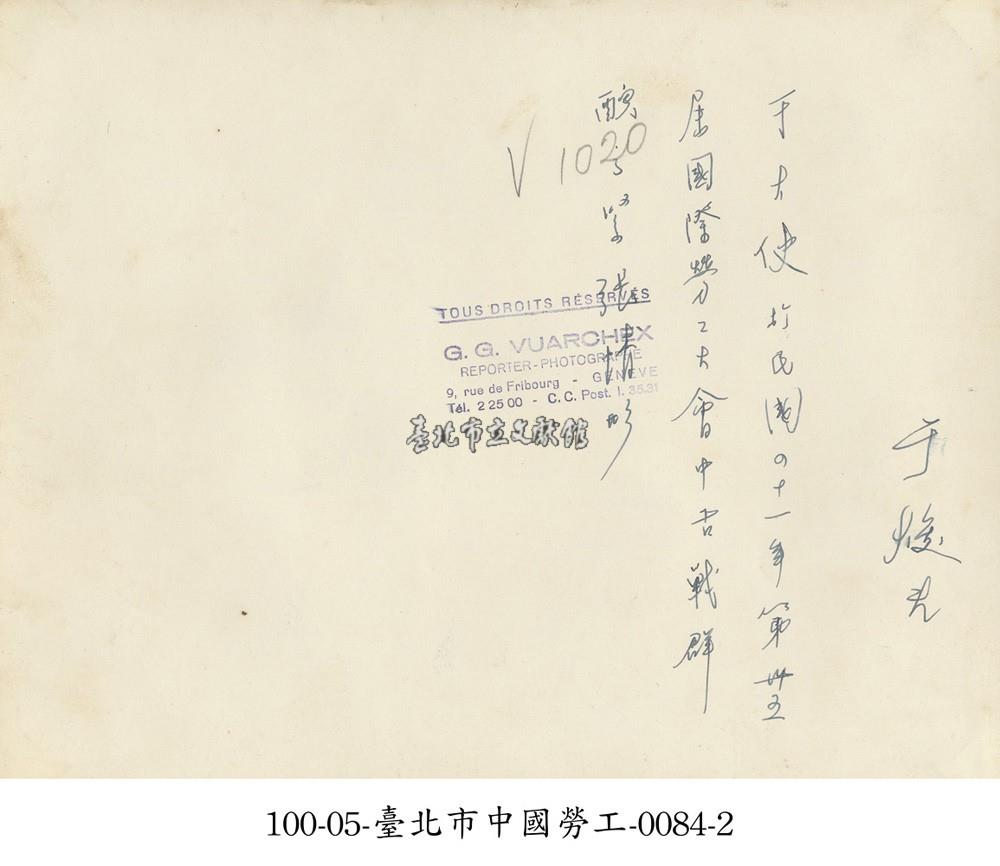 于焌吉
于大使於民國四十一年第卅五
屆國際勞工大會中舌戰群
醜 緊張情形
V 1020
TOUS DROITS RÉSERVÉS
G. G. VUARCHEX
REPORTER-PHOTOGRAPHE
9, rue de Fribourg - GENÈVE
Tél. 2 25 00 - C. C. Post. I. 35.31
臺北市立文獻館
100-05-臺北市中國勞工-0084-2